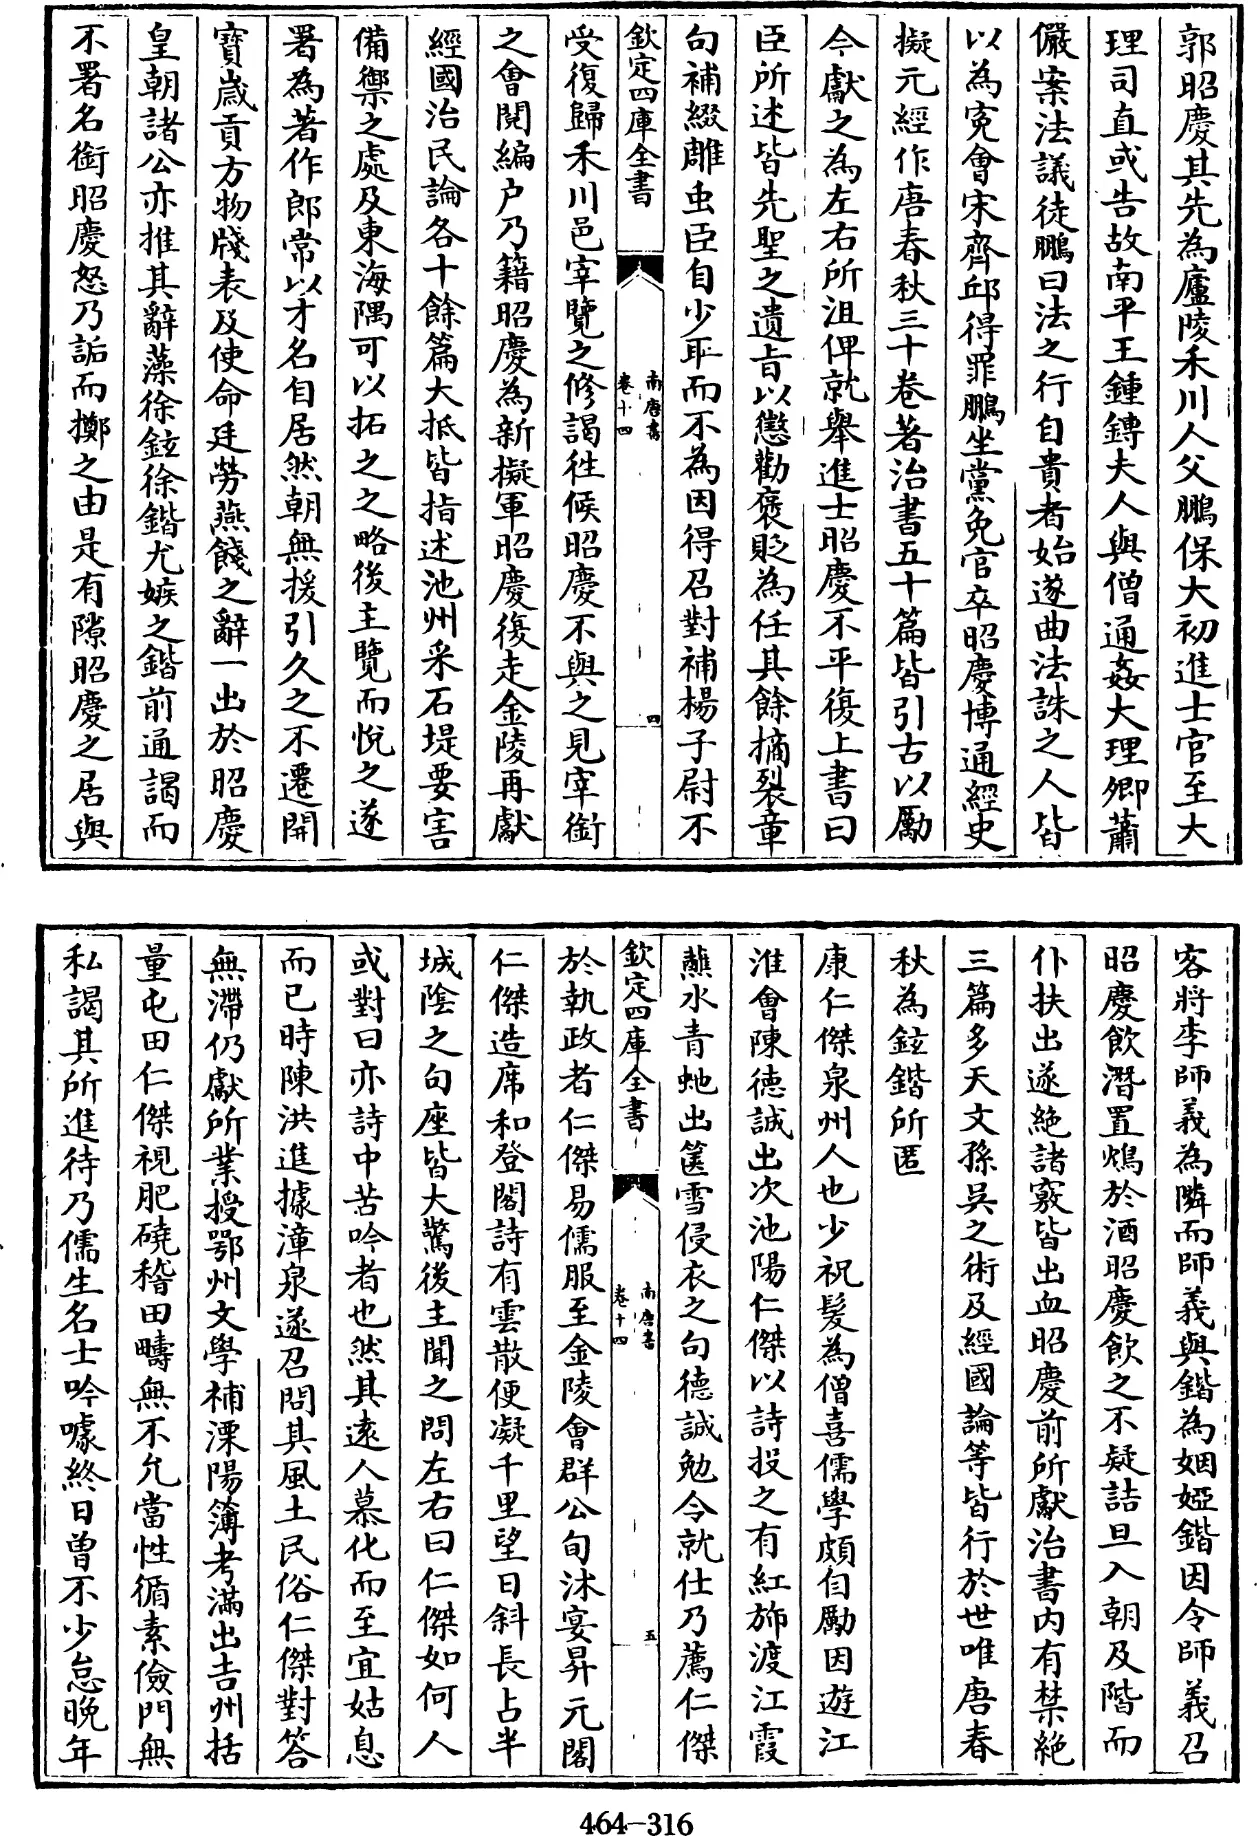 郭昭慶其先為廬陵禾川人父鵬保大初進士官至大
理司直或告故南平王鍾鏄夫人與僧通姦大理卿蕭
儼案法議徒鵬曰法之行自貴者始遂曲法誅之人皆
以為寃會宋齊邱得罪鵬坐黨免官卒昭慶博通經史
擬元經作唐春秋三十卷著治書五十篇皆引古以勵
今獻之為左右所沮俾就舉進士昭慶不平復上書曰
臣所述皆先聖之遺旨以懲勸褒貶為任其餘摘裂章
句補綴雕虫臣自少耻而不為因得召對補楊子尉不
欽定四庫全書
南唐書
卷十四
四
受復歸禾川邑宰覽之修謁往候昭慶不與之見宰銜
之會閱編户乃籍昭慶為新擬軍昭慶復走金陵再獻
經國治民論各十餘篇大抵皆指述池州采石堤要害
備禦之處及東海隅可以拓之之略後主覽而悅之遂
署為著作郎常以才名自居然朝無援引久之不遷開
寶嵗貢方物牋表及使命廷勞燕餞之辭一出於昭慶
皇朝諸公亦推其辭藻徐鉉徐鍇尤嫉之鍇前通謁而
不署名銜昭慶怒乃詬而擲之由是有隙昭慶之居與
客將李師義為隣而師義與鍇為姻婭鍇因令師義召
昭慶飲潛置鴆於酒昭慶飲之不疑詰旦入朝及階而
仆扶出遂絶諸竅皆出血昭慶前所獻治書内有禁絶
三篇多天文孫吳之術及經國論等皆行於世唯唐春
秋為鉉鍇所匿
康仁傑泉州人也少祝髮為僧喜儒學頗自勵因遊江
淮會陳德誠出次池陽仁傑以詩投之有紅旆渡江霞
蘸水青虵出篋雪侵衣之句德誠勉令就仕乃薦仁傑
欽定四庫全書
南唐書
卷十四
五
於執政者仁傑易儒服至金陵會群公旬沐宴昇元閣
仁傑造席和登閣詩有雲散便凝千里望日斜長占半
城隂之句座皆大驚後主聞之問左右曰仁傑如何人
或對曰亦詩中苦吟者也然其遠人慕化而至宜姑息
而已時陳洪進據漳泉遂召問其風土民俗仁傑對答
無滯仍獻所業授鄂州文學補溧陽簿考滿出吉州括
量屯田仁傑視肥磽稽田疇無不允當性循素儉門無
私謁其所進待乃儒生名士吟噱終日曾不少怠晚年
464-316